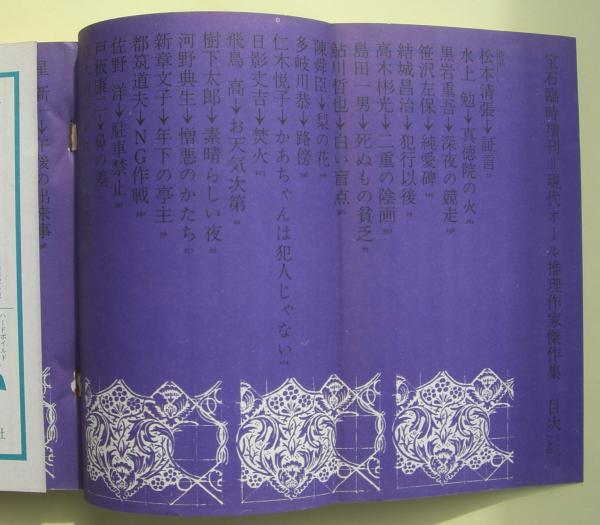 宝石臨時増刊＝現代オール推理作家傑作集 目次
松本清張→証言
水上 勉→真徳院の火
黒岩重吾→深夜の競走
笹沢左保→純愛碑
結城昌治→犯行以後
高木彬光→二重の陰画
島田一男→死ぬもの貧乏
鮎川哲也→白い盲点
陳舜臣→梨の花
多岐川恭→路傍
仁木悦子→かあちゃんは犯人じゃない
日影丈吉→焚火
飛鳥 高→お天気次第
樹下太郎→素晴らしい夜
河野典生→憎悪のかたち
新章文子→年下の亭主
都筑道夫→NG作戦
佐野 洋→駐車禁止
戸板康二→鼻の差
星 新一→午後の出来事
ハードボイルド
社